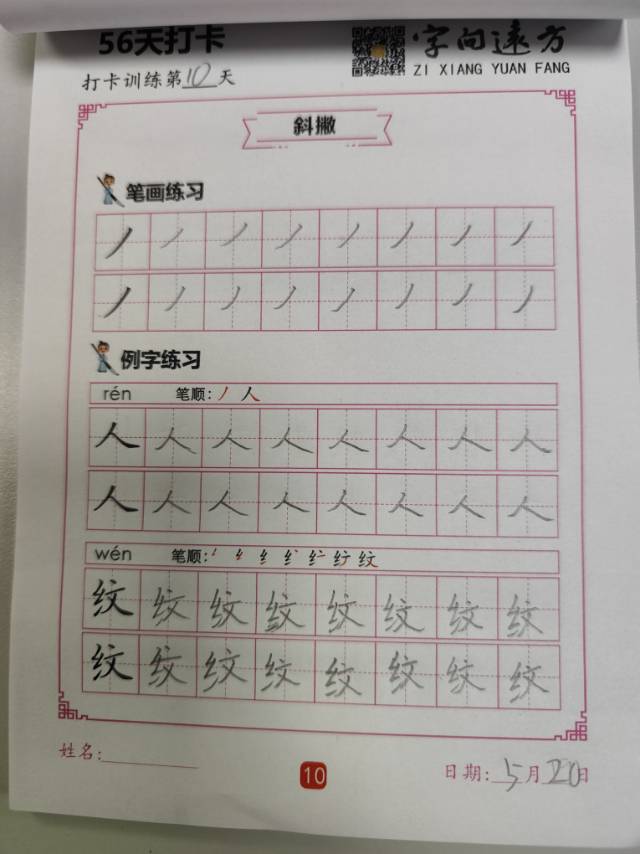 56天打卡
字向远方
ZI XIANG YUAN FANG
打卡训练第10天
斜撇
笔画练习
丿丿丿丿丿丿丿丿
丿丿丿丿丿丿丿丿
例字练习
rén 笔顺: 丿 人
人人人人人人人人
人人人人人人人人
wén 笔顺: 纹
纹纹纹纹纹纹纹纹
纹纹纹纹纹纹纹纹
姓名:
10
日期: 5月20日